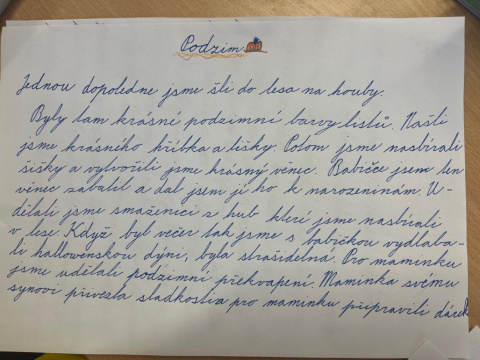 Podzim
Jednou dopoledne jsme šli do lesa na houby.
Byly tam krásné podzimní barvy listů. Našli
jsme krásného hřibka a lišky. Potom jsme nasbírali
šišky a vytvořili jsme krásný věnec. Babičce jsem ten
věnec zabalil a dal jsem jí ho k narozeninám. U-
dělali jsme smaženici z hub kteri jsme nasbírali
v lese. Když byl večer tak jsme s babičkou vydlaba-
li hallowenskou dýni, byla strašidelná. Pro maminku
jsme udělali podzimní překvapení. Maminka svému
synovi přivezla sladkostia pro maminku připravili dárek